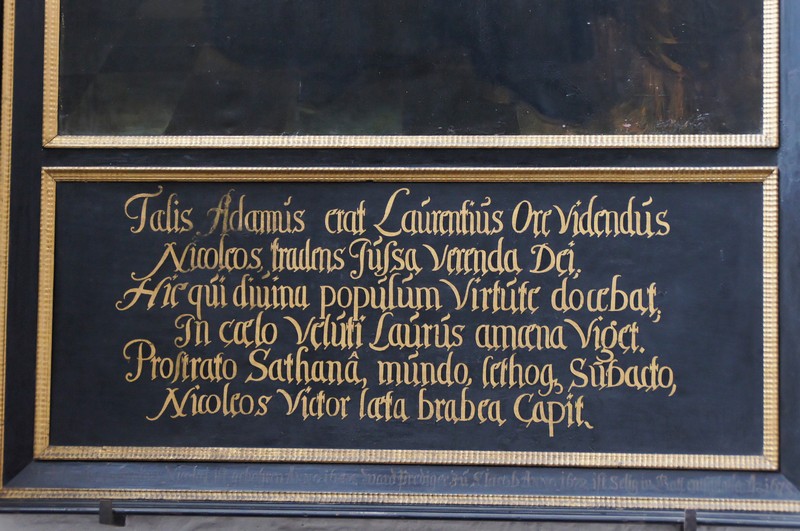 Talis Adamus erat Laurentius Ore Videndus
Nicoleos, tradens Jussa Verenda Dei,
Hic qui diuina populum Virtute docebat,
In cœlo Veluti Laurus amæna Viget.
Prostrato Sathanâ, mundo, lethoq, Subacto,
Nicoleos Victor læta brabea Capit.
ward Prediger zu S. Jacob Anno